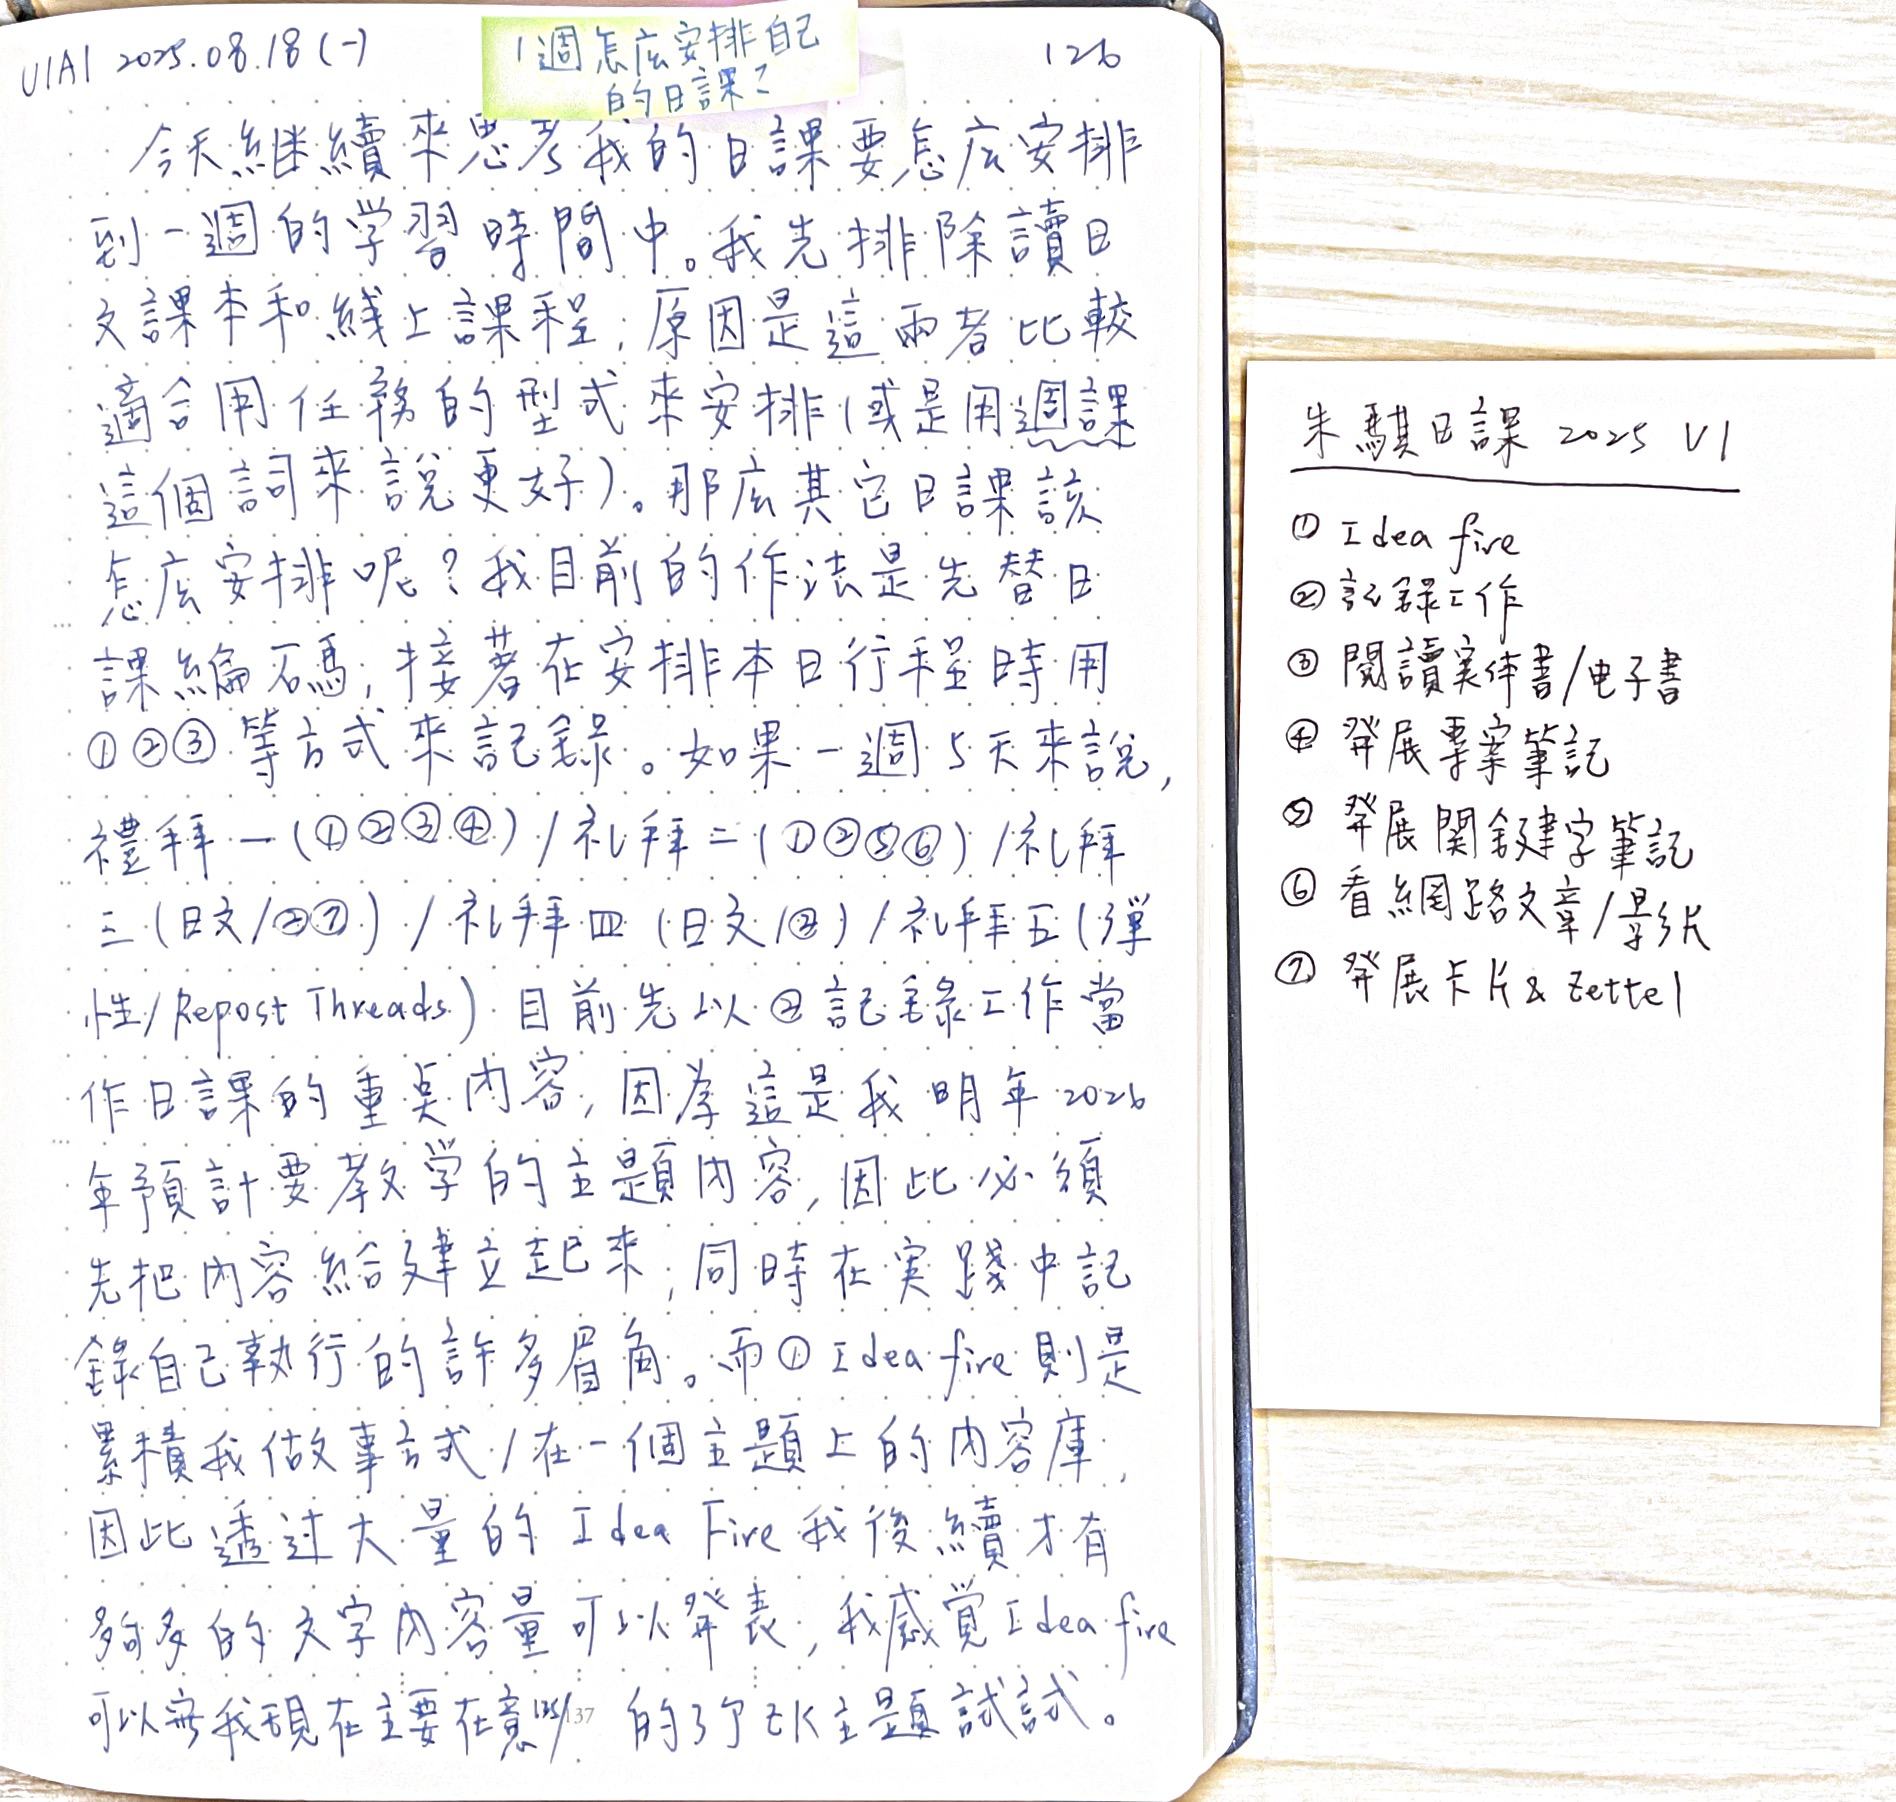 V1A1 2025.08.18 (一)
1週怎庅安排自己
的日課?
126
今天継續來思考我的日課要怎庅安排
到一週的学習時間中。我先排除讀日
文課本和线上課程,原因是這兩者比較
適合用任務的型式來安排(或是用週課
這個詞來説更好)。那庅其它日課該
怎庅安排呢?我目前的作法是先替日
課編碼,接著在安排本日行程時用
①②③等方式來記錄。如果一週5天來説,
禮拜一(①②③④)/礼拜二(①②⑤⑥)/礼拜
三(日文/②⑦)/礼拜四(日文/②)/礼拜五(彈
性/Repost Threads)目前先以②記錄工作當
作日課的重点内容,因為這是我明年2026
年預計要教学的主題内容,因此必須
先把内容給建立起來,同時在実踐中記
錄自己執行的許多眉角。而①Idea fire則是
累積我做事方式/在一個主題上的内容庫,
因此透过大量的Idea Fire我後續才有
夠多的文字内容量可以発表,我感覚Idea fire
可以寫我現在主要在意的3個ZK主題試試。
135/137
朱騏日課 2025 V1
① Idea fire
② 記錄工作
③ 閱讀実体書/电子書
④ 発展專案筆記
⑤ 発展関鍵字筆記
⑥ 看網路文章/影片
⑦ 発展卡片&Zettel